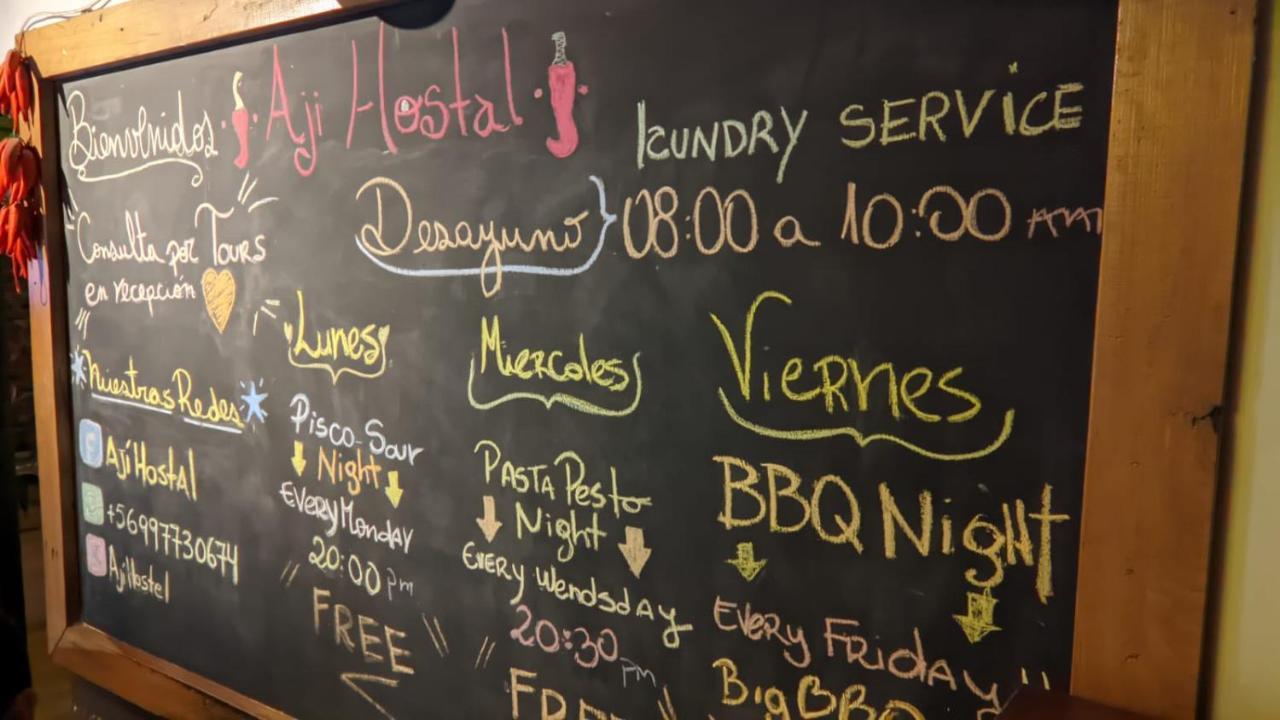 Bienvenidos Aji Hostal
LUNDRY SERVICE
Desayuno 08:00 a 10:00 AM
Consulta por Tours
en recepción
Nuestras Redes
AjiHostAl
+56997730674
AjiHostel
Lunes
Pisco-Sour
Night
EVERY MONDAY
20:00 pm
FREE
Miercoles
PASTA Pesto
Night
EVERY WENDSDAY
20:30 pm
FREE
Viernes
BBQ Night
EVERY FRIDAY
Big BBQ